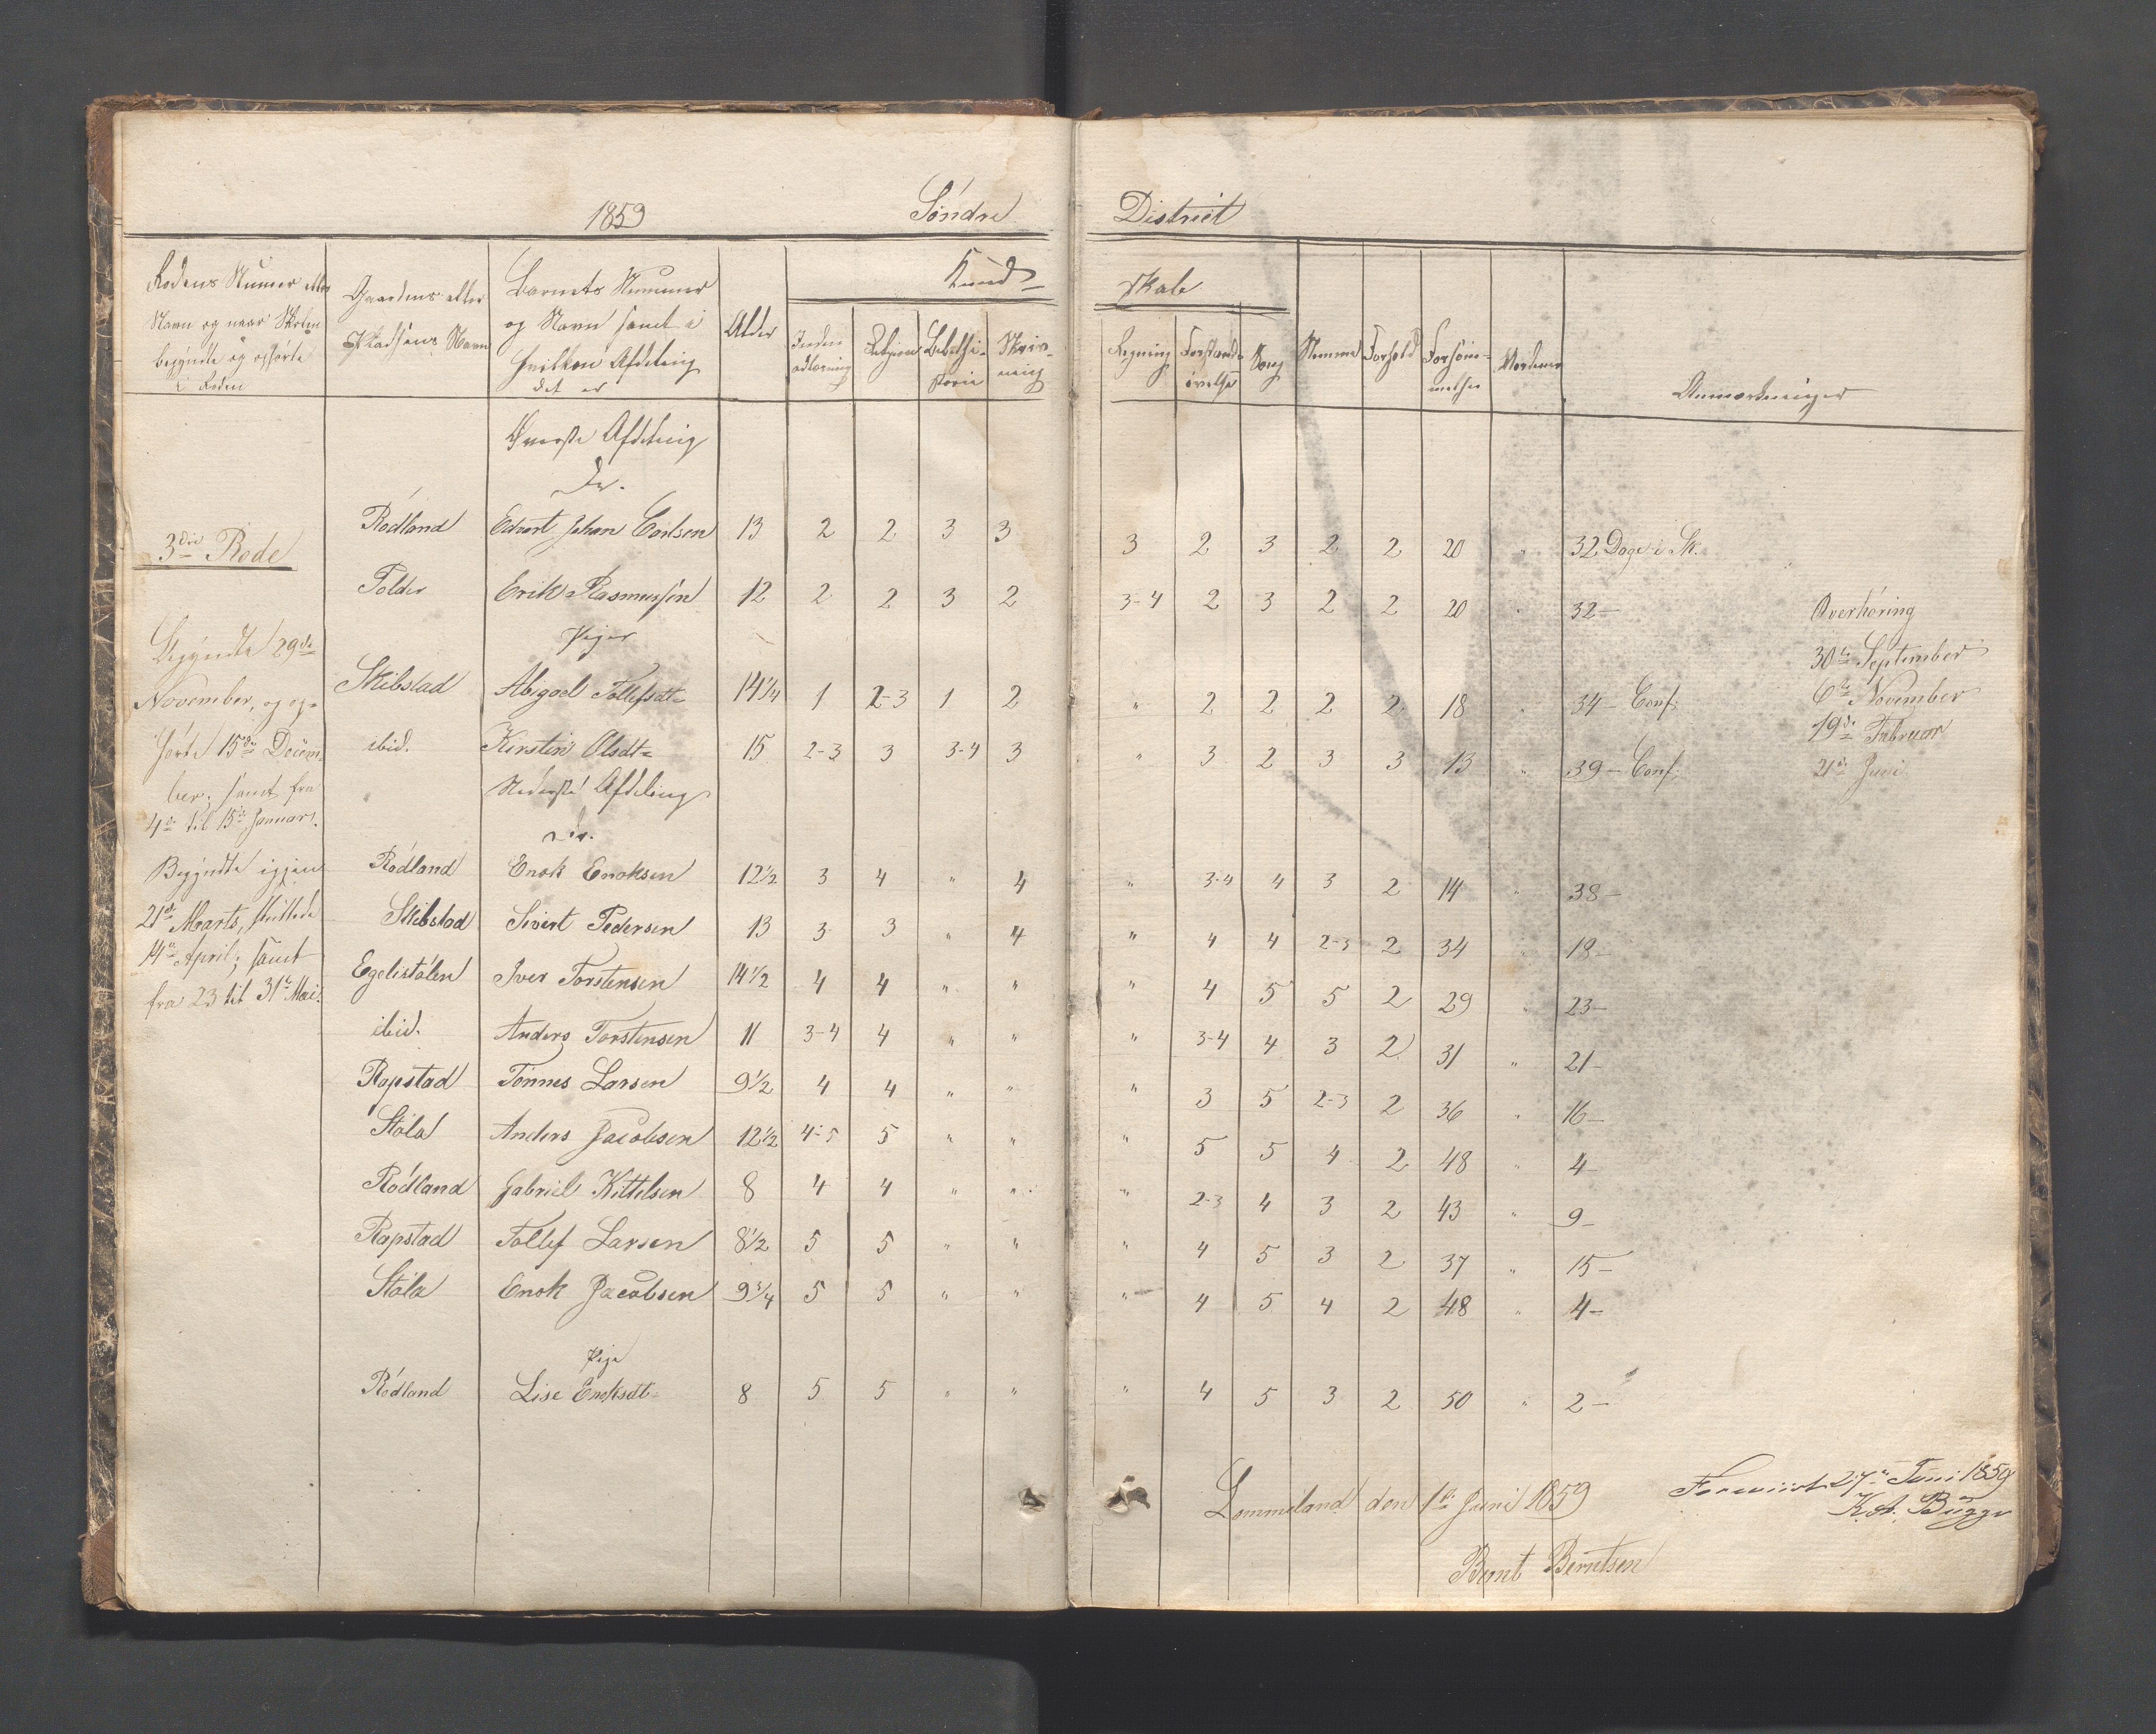 1859 Söndre District
Rodens Numer eller Navn og naar Skolen begyndte og ophörte i Roden
Gaardens eller Pladsens Navn
Barnets Nummer og Navn samt i hvilken Afdeling det er
Alder
Kundskabe
Religion
Bibelhistorie
Skrivning
Regning
Forstandsövelse
Sang
Nemme
Forhold
Forsömmelser
Anmærkninger
Överste Afdeling
Rödland Edvart Johan Carlsen 13 2 2 3 3 3 2 3 2 2 20 " 32 Dage i Sk.
3die Rode
Polder Erik Rasmussen 12 2 2 3 2 3-4 2 3 2 2 20 " 32 –
Overhöring
Piger
30te September
Begyndte 29de
Skibstad Abigael Tollefsdt 14 1/4 1 2-3 1 2 " 2 2 2 2 18 " 34 – Conf.
6te November
November, og op-
19de Februar
hörte 15de Decem-
ibid. Kirstin Olsdt 15 2-3 3 3-4 3 " 3 2 3 3 13 " 39 – Conf.
21de Juni
Nederste Afdeling
ber; samt fra
4de til 15de Januar.
Begyndte igjen
Rödland Enok Enoksen 12 1/2 3 4 " 4 " 3-4 4 3 2 14 " 38 –
21de Marts, sluttede
Skibstad Sivert Pedersen 13 3 3 " 4 " 4 4 2-3 2 34 " 18 –
14de April; samt
Egelistölen Iver Torstensen 14 1/2 4 4 " " " 4 5 5 2 29 " 23 –
fra 23 til 31te Mai.
ibid. Anders Torstensen 11 3-4 4 " " " 3-4 4 3 2 31 " 21 –
Rapstad Tönnes Larsen 9 1/2 4 4 " " " 3 5 2-3 2 36 " 16 –
Stöla Anders Jacobsen 12 1/2 4-5 5 " " " 5 5 4 2 48 " 4 –
Rödland Gabriel Kittelsen 8 4 4 " " " 2-3 4 3 2 43 " 9 –
Rapstad Tollef Larsen 8 1/2 5 5 " " " 4 5 3 2 37 " 15 –
Stöla Enok Jacobsen 9 3/4 5 5 " " " 4 5 4 2 48 " 4 –
Pige
Rödland Lise Enoksdt 8 5 5 " " " 4 5 3 2 50 " 2 –
Lommeland den 1te Juni 1859
Bernt Berntsen
Foreviist 27de Juni 1859
Bugge